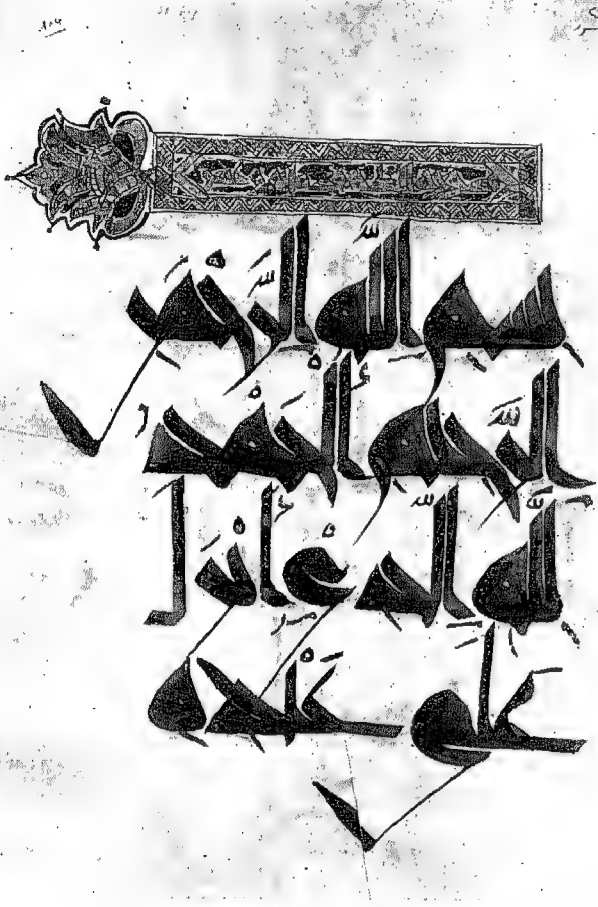 بسم الله الرحمن
الرحيم الحمد
لله الذي أنزل
على عبده